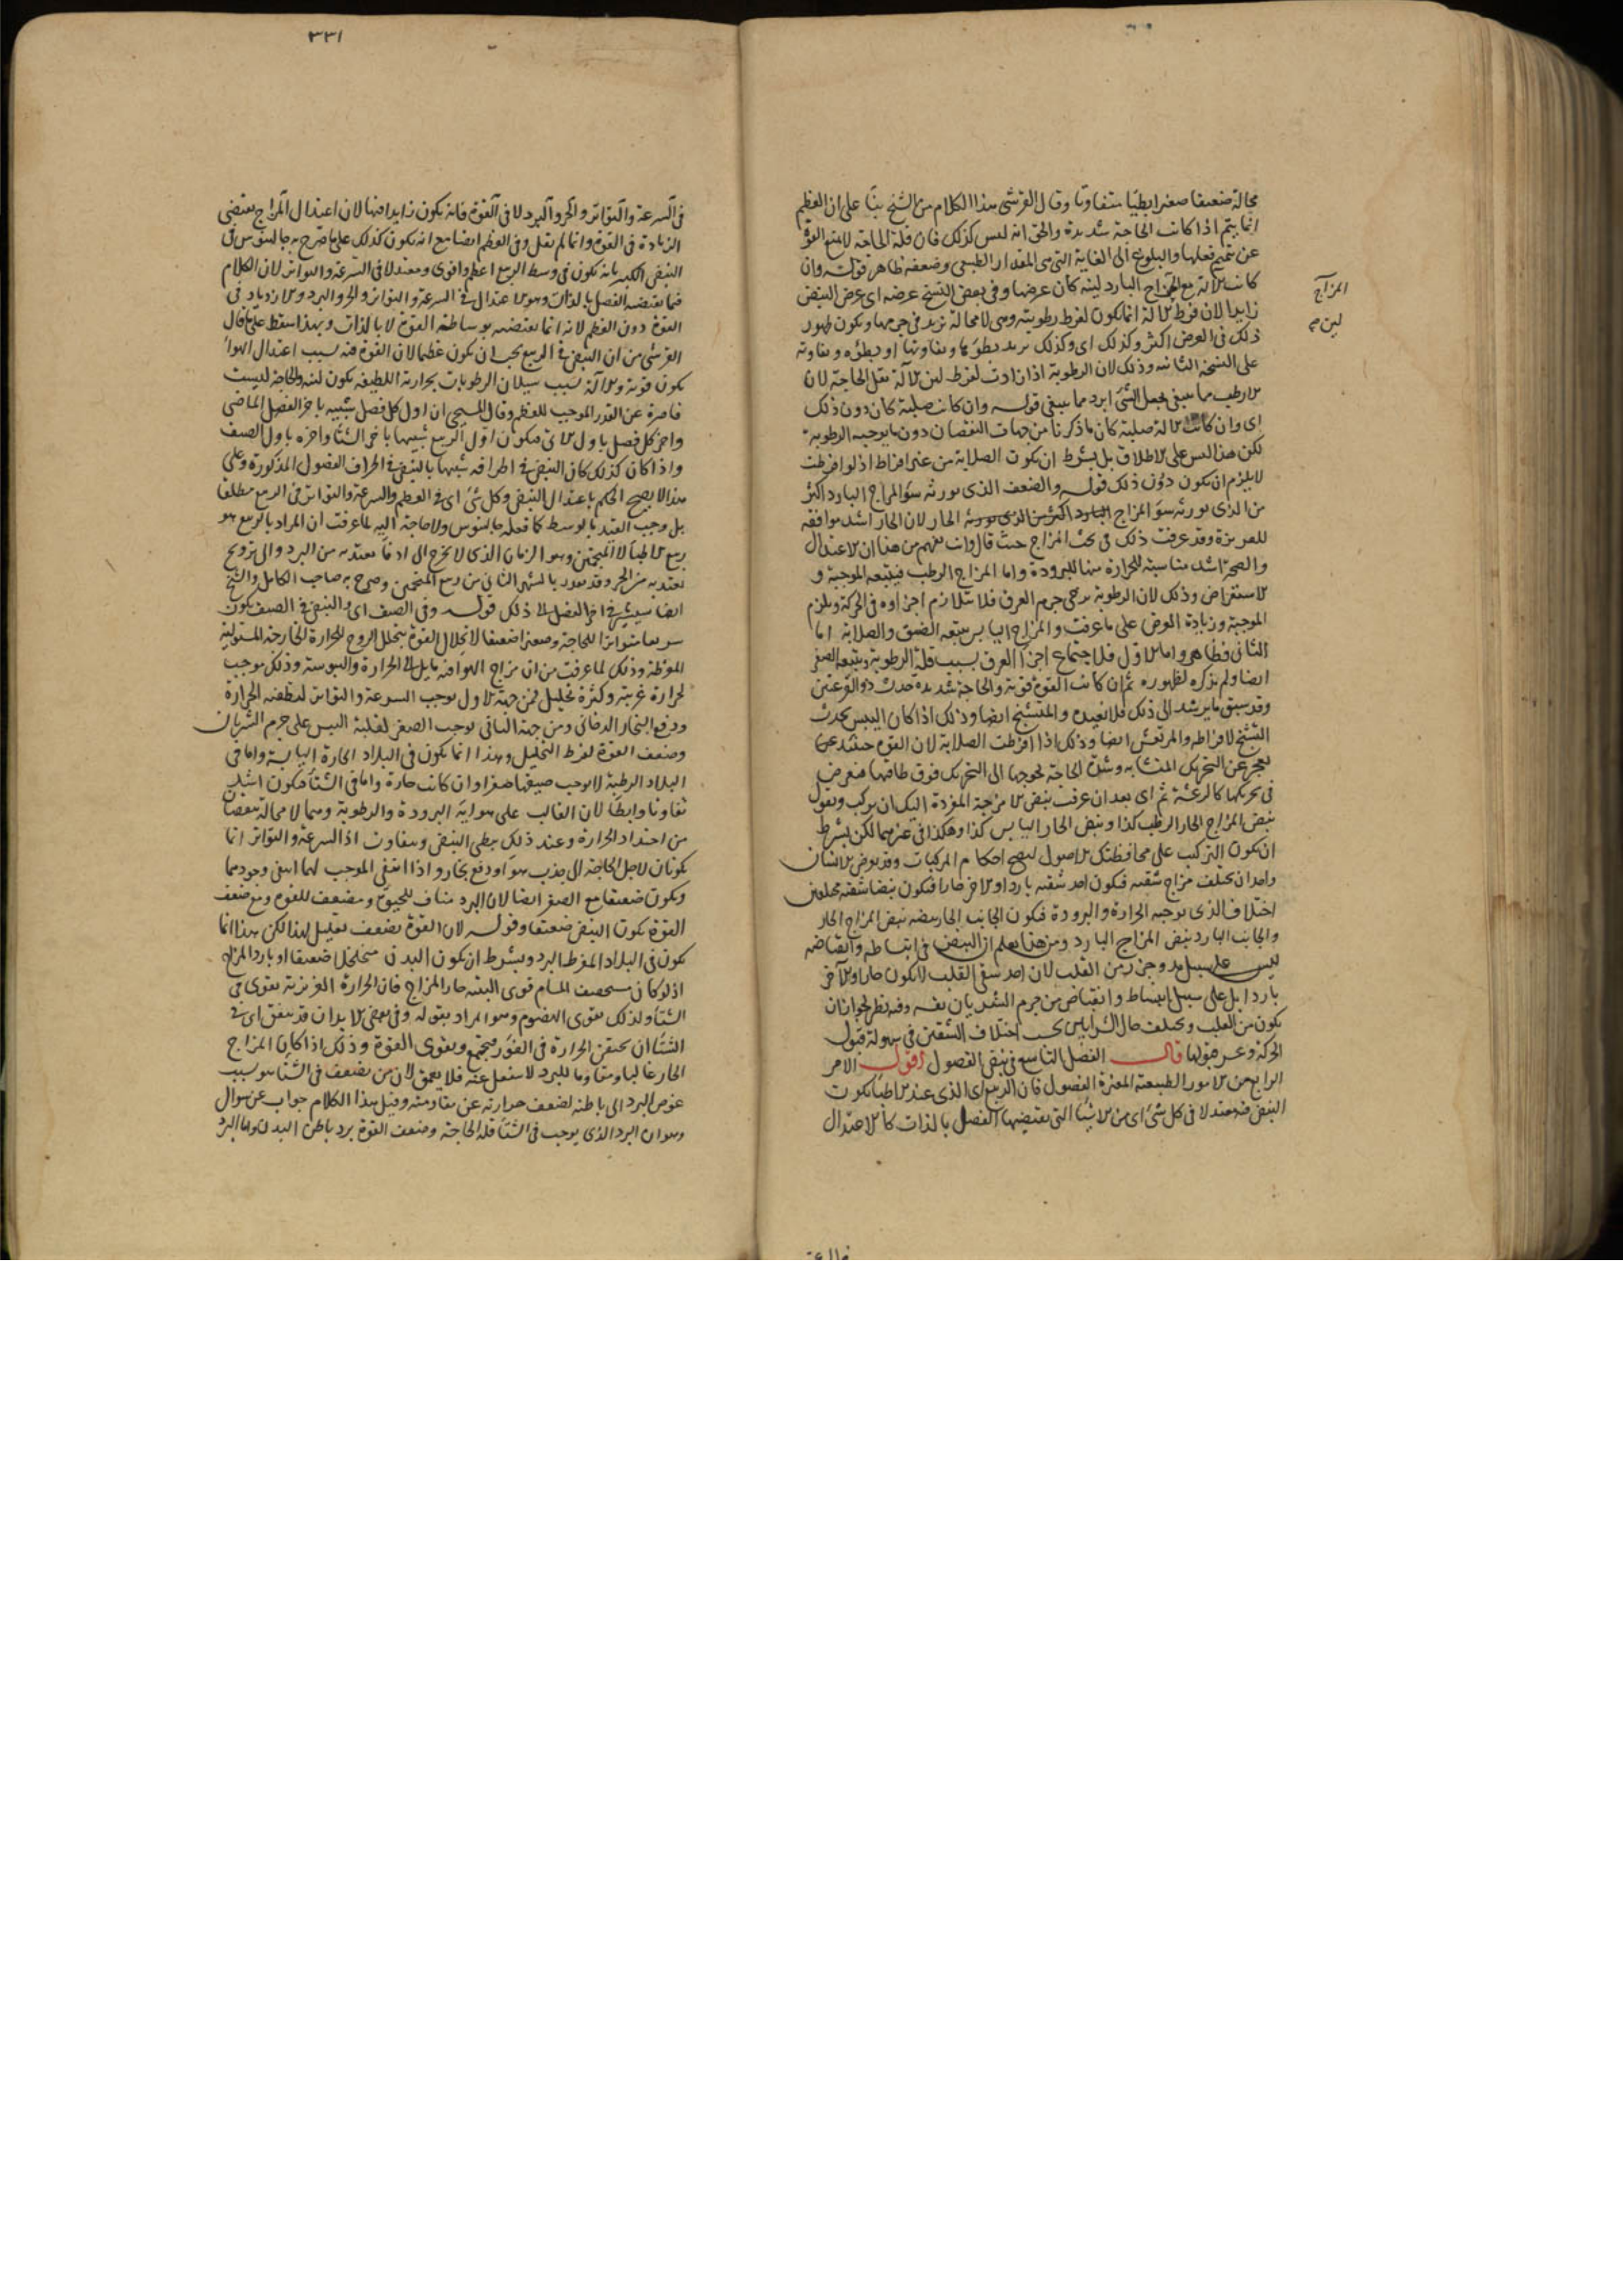 محالة ضعيفا صغيرا بطيئا متفاوتا وقال القرشى هذا الكلام من الشيخ بنا على ان العظم
انما يتم اذا كانت الحاجة شديدة والحق انه ليس كذلك فان قلة الحاجة لا تمنع القوة
عن تتميم فعلها والبلوغ الى الغاية التى هى المقدار الطبيعى وضعفه ظاهر قوله وان
كانت الآلة مع المزاج البارد لينة كان عرضها وفى بعض النسخ عرضه اى عرض النبض
زايدا لان فرط الآلة انما يكون لفرط رطوبته وهى لا محالة تزيد فى جرمها ويكون ظهور
ذلك فى العرض اكثر وكذلك اى وكذلك يزيد بطؤها وتفاوتها او بطؤه وتفاوته
على النسخة الثانية وذلك لان الرطوبة اذا زادت لفرط لين الآلة تقل الحاجة لان
الارطب مما ينبغى يجعل الشئ ابرد مما ينبغى قوله وان كانت صلبة كان دون ذلك
اى وان كانت الآلة صلبة كان ما ذكرنا من جهات النقصان دون ما يوجبه الرطوبة
لكن هذا ليس على الاطلاق بل بشرط ان يكون الصلابة من غير افراط اذ لو افرطت
لا يلزم ان يكون دون ذلك قوله والضعف الذى يورثه سوء المزاج البارد اكثر
من الذى يورثه سوء المزاج الحار لان الحار اشد موافقة
للغريزة وقد عرفت ذلك فى بحث المزاج حيث قال وانت تفهم من هذا ان الاعتدال
والصحة اشد مناسبة للحرارة منها للبرودة واما المزاج الرطب فيتبعه الموجية و
الاستعراض وذلك لان الرطوبة ترخى جرم العرق فلا يتلازم اجزاوه فى الحركة ويلزم
الموجية وزيادة العرض على ما عرفت والمزاج اليابس يتبعه الضيق والصلابة اما
الثانى فظاهر واما الاول فلاجتماع اجزا العرق بسبب قلة الرطوبة ويتبعه الصغر
ايضا ولم يذكره لظهوره ثم ان كانت القوة قوية والحاجة شديدة حدث ذو القرعتين
وقد سبق ما يرشد الى ذلك فلا نعيده والمتشنج ايضا وذلك اذا كان اليبس يحدث
التشنج لافراطه والمرتعش ايضا وذلك اذا افرطت الصلابة لان القوة حينئذ
تعجز عن التحريك المتشابه وشدة الحاجة تحوجها الى التحريك فوق طاقتها فيعرض
فى تحريكها كالرعشة ثم اى بعد ان عرفت نبض الامزجة المفردة اليك ان تركب وتقول
نبض المزاج الحار الرطب كذا ونبض الحار اليابس كذا وهكذا فى غيرهما لكن بشرط
ان يكون التركيب على محافظتك الاصول ليصح احكام المركبات وقد يعرض لانسان
واحد ان يختلف مزاج شقيه فيكون احد شقيه باردا والاخر حارا فيكون نبضا شقيه مختلفين
اختلاف الذى يوجبه الحرارة والبرودة فيكون الجانب الحار نبضه نبض المزاج الحار
والجانب البارد نبض المزاج البارد ومن هذا يعلم ان النبض فى انبساطه وانقباضه
ليس على سبيل مد وجزر من القلب لان احد شقى القلب لا يكون حارا والآخر
باردا بل على سبيل انبساط وانقباض من جرم الشريان نفسه وفيه نظر لجواز ان
يكون من القلب ويختلف حال الشرايين اختلاف الشقين فى سهولة قبول
الحركة وعسر قبولها قال الفصل التاسع فى نبض الفصول اقول الامر
الرابع من الامور الطبيعية المغيرة الفصول فان الربيع اى الذى عند الاطبا يكون
النبض فيه معتدلا فى كل شئ اى من الاشيا التى يقتضيها الفصل بالذات كالاعتدال
المزاج
لين صح
٣٣١
فى السرعة والتواتر والحر والبرد لا فى القوة فانه يكون زايدا فيها لان اعتدال المزاج يقتضى
الزيادة فى القوة وانما لم يقل وفى العظم ايضا مع انه يكون كذلك على ما صرح به جالينوس فى
النبض الكبير بانه يكون فى وسط الربيع اعظم واقوى ومعتدلا فى السرعة والتواتر لان الكلام
فيما يقتضيه الفصل بالذات وهو الاعتدال فى السرعة والتواتر والحر والبرد والازدياد فى
القوة دون العظم لانه انما يقتضيه بوساطة القوة لا بالذات وبهذا سقط على ما قال
القرشى من ان النبض فى الربيع يجب ان يكون عظيما لان القوة فيه بسبب اعتدال الهوا
يكون قوية والآلة بسبب سيلان الرطوبات بحرارته اللطيفة يكون لينة والحاجة ليست
قاصرة عن القدر الموجب للعظم وقال المسيحى ان اول كل فصل شبيه باخر الفصل الماضى
واخر كل فصل باول الاتى فيكون اول الربيع شبيها باخر الشتا واخره باول الصيف
واذا كان كذلك كان النبض فى اطرافه شبيها بالنبض فى اطراف الفصول المذكورة وعلى
هذا لا يصح الحكم باعتدال النبض وكل شئ اى فى العظم والسرعة والتواتر فى الربيع مطلقا
بل وجب القيد بالوسط كما فعله جالينوس ولا حاجة اليه لما عرفت ان المراد بالربيع هو
ربيع الاطبا لا المنجمين وهو الزمان الذى لا يحوج الى ادفا يعتد به من البرد والى ترويح
يعتد به من الحر وقد يقدر بالشهر الثانى من ربيع المنجمين وصرح به صاحب الكامل والشيخ
ايضا سيشير فى اخر الفصل الى ذلك قوله وفى الصيف اى والنبض فى الصيف يكون
سريعا متواترا للحاجة وصغيرا ضعيفا لانحلال القوة بتحلل الروح للحرارة الخارجة المستولية
المفرطة وذلك لما عرفت من ان مزاج الهوا فيه مايل الى الحرارة واليبوسة وذلك موجب
لحرارة غريبة وكثرة تحليل فمن جهة الاول يوجب السرعة والتواتر لتطفئه الحرارة
ودفع البخار الدخانى ومن جهة الثانى يوجب الصغر لغلبة اليبس على جرم الشريان
وضعف القوة لفرط التحليل وهذا انما يكون فى البلاد الحارة اليابسة واما فى
البلاد الرطبة لا يوجب صيفها صغرا وان كانت حارة واما فى الشتا فيكون اشد
تفاوتا وابطا لان الغالب على هوايه البرودة والرطوبة وهما لا محالة ينقصان
من احتداد الحرارة وعند ذلك يبطى النبض ويتفاوت اذ السرعة والتواتر انما
يكونان لاجل الحاجة الى جذب هوا ودفع بخار واذا انتفى الموجب لهما انتفى وجودهما
ويكون ضعيفا مع الصغر ايضا لان البرد مناف للحيوة ومضعف للقوة ومع ضعف
القوة يكون النبض ضعيفا وقوله لان القوة تضعف تعليل لهذا لكن هذا انما
يكون فى البلاد المفرط البرد وبشرط ان يكون البدن متخلخلا ضعيفا او بارد المزاج
اذ لو كان مستحصف المسام قوى البنية حار المزاج فان الحرارة الغريزية تقوى فى
الشتا ولذلك تقوى الهضوم وهو المراد بقوله وفى بعض الابدان قد يتفق اى فى
الشتا ان تحتقن الحرارة فى الغور وتجتمع وتقوى القوة وذلك اذا كان المزاج
الحار غالبا ومقاوما للبرد لا ينفعل عنه فلا يعمق لان من يضعف فى الشتا هو بسبب
غوص البرد الى باطنه لضعف حرارته عن مقاومته وقيل هذا الكلام جواب عن سوال
وهو ان البرد الذى يوجب فى الشتا قلة الحاجة وضعف القوة برد باطن البدن واما البرد